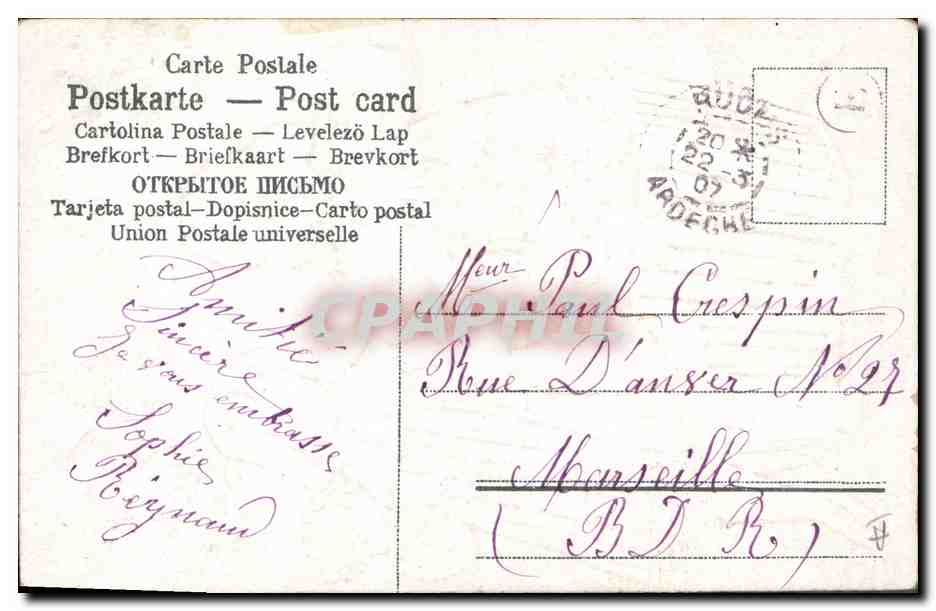 Carte Postale
Postkarte — Post card
Cartolina Postale — Levelező Lap
Brefkort — Briefkaart — Brevkort
ОТКРЫТОЕ ПИСЬМО
Tarjeta postal–Dopisnice–Carto postal
Union Postale universelle
20 *
22 - 3
07
ARDECHE
CPAPHIL
Amitié
Sincère
Je vous embrasse
Sophie
Reynaud
Meur Paul Crespin
Rue D'anver No 27
Marseille
( B D R )